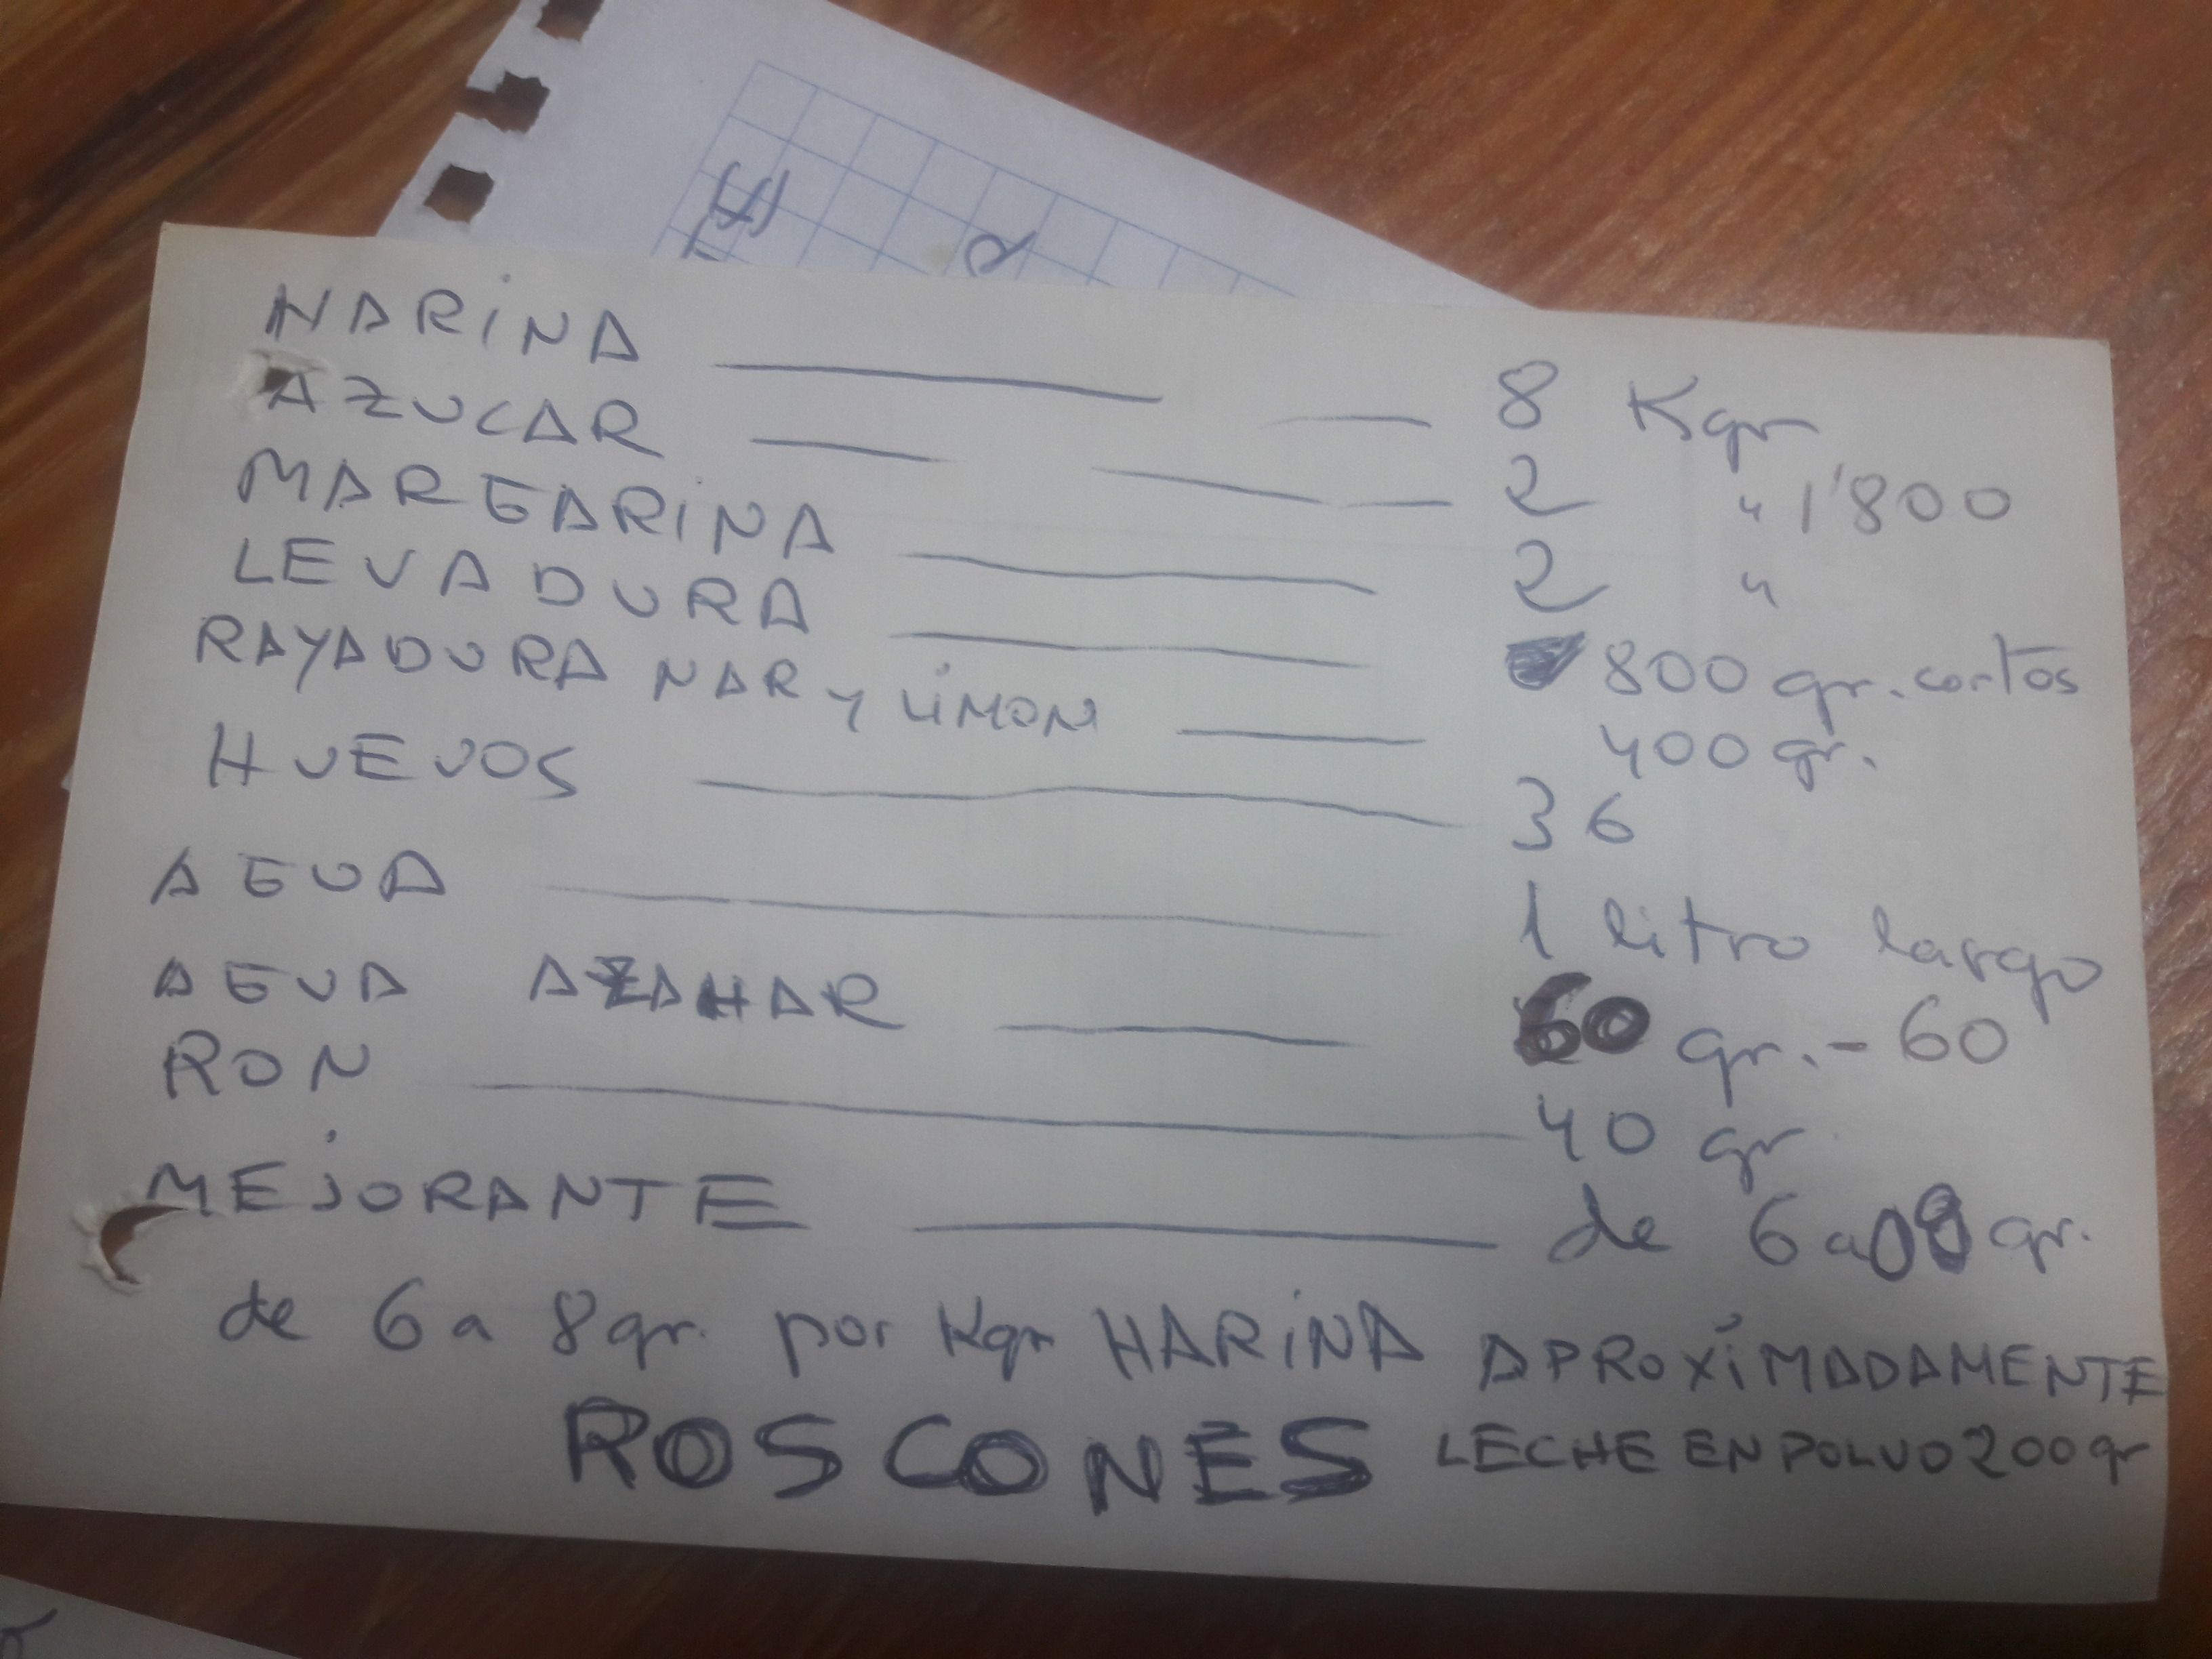 HARINA 8 Kgr
AZUCAR 2 " 1'800
MARGARINA 2 "
LEVADURA 800 gr. cortos
RAYADURA NAR y LIMON 400 gr.
HUEVOS 36
AGUA 1 litro largo
AGUA AZAHAR 60 gr. - 60
RON 40 gr
MEJORANTE de 6 a 8 gr.
de 6 a 8 gr. por Kgr HARINA APROXIMADAMENTE
ROSCONES LECHE EN POLVO 200 gr